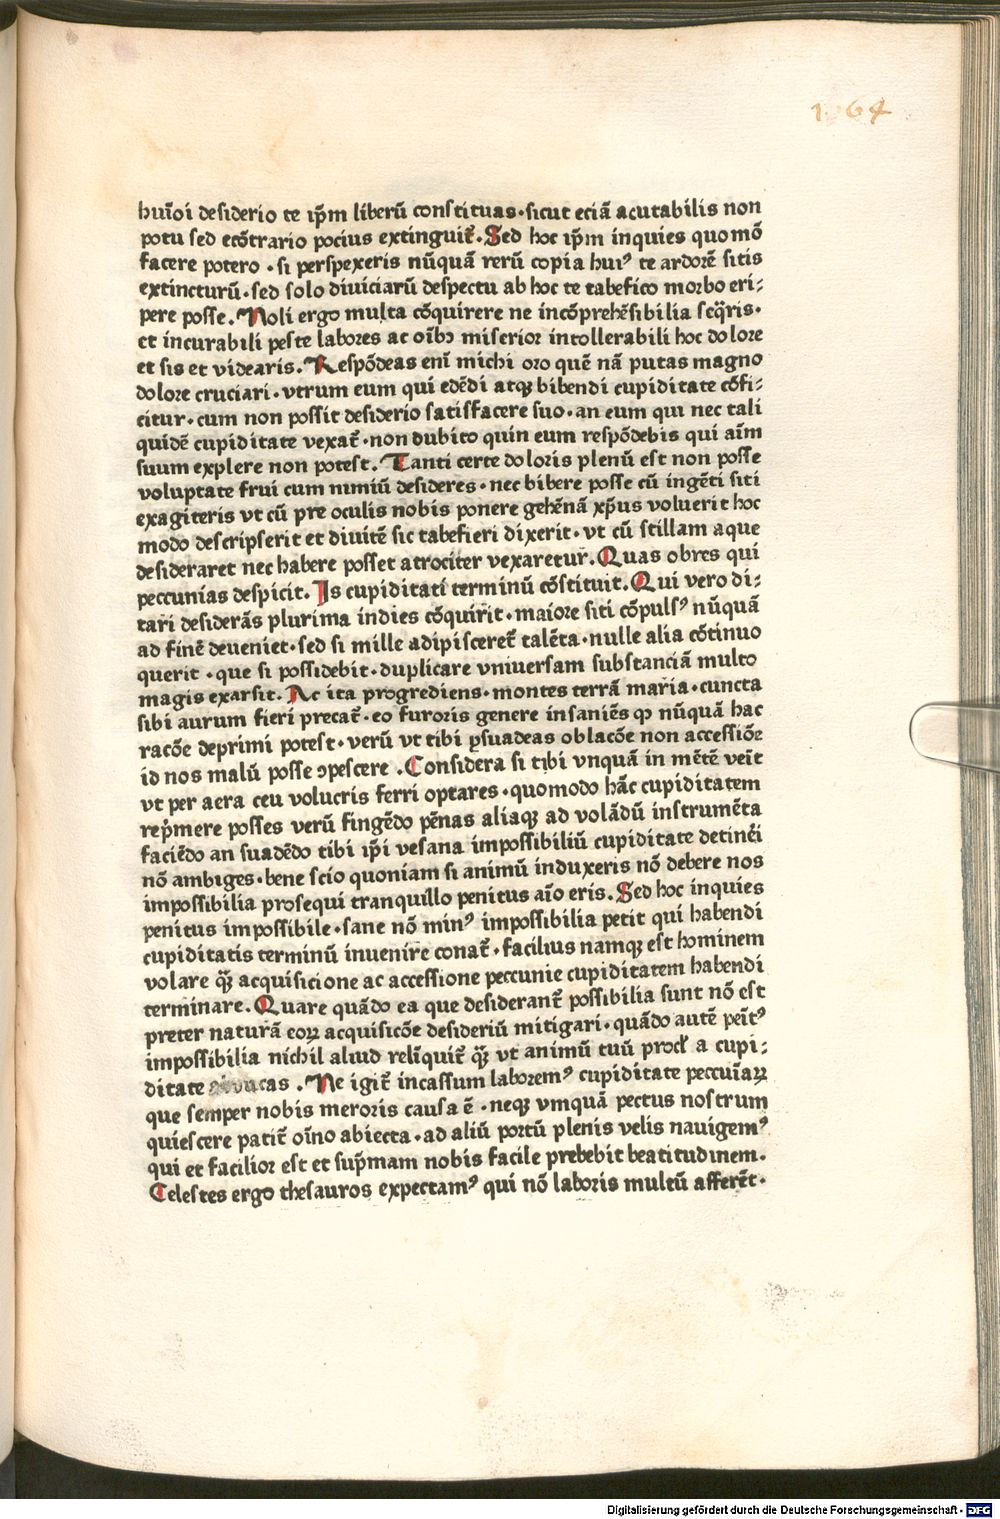 1 64
huiꝰoi desiderio te ip̄m liberū constituas · sicut eciā acutabilis non
potu sed ecōtrario pocius extinguit̄. Sed hoc ip̄m inquies quomō
facere potero · si perspexeris nūquā rerū copia huiꝰ te ardorē sitis
extincturū · sed solo diuiciarū despectu ab hoc te tabefico morbo eri⸗
pere posse. Noli ergo multa cōquirere ne incōprehēsibilia seq̄ris ·
et incurabili peste labores ac oībꝫ miserior intollerabili hoc dolore
et sis et videaris. Respōdeas enī michi oro quē nā putas magno
dolore cruciari · vtrum eum qui edēdi atqꝫ bibendi cupiditate cōfi⸗
citur · cum non possit desiderio satisfacere suo · an eum qui nec tali
quidē cupiditate vexat̄ · non dubito quin eum respōdebis qui aīm
suum explere non potest. Tanti certe doloris plenū est non posse
voluptate frui cum nimiū desideres · nec bibere posse cū ingēti siti
exagiteris vt cū pre oculis nobis ponere gehēnā xp̄us voluerit hoc
modo descripserit et diuitē sic tabefieri dixerit · vt cū stillam aque
desideraret nec habere posset atrociter vexaretur̄. Quas obres qui
peccunias despicit. Is cupiditati terminū cōstituit. Qui vero di⸗
tari desiderās plurima indies cōquirit · maiore siti cōpulsꝰ nūquā
ad finē deueniet · sed si mille adipisceret̄ talēta · nulle alia cōtinuo
querit · que si possidebit · duplicare vniuersam substanciā multo
magis exarsit. Ac ita progrediens · montes terrā maria · cuncta
sibi aurum fieri precat̄ · eo furoris genere insaniēs qꝫ nūquā hac
racōe deprimi potest · verū vt tibi ꝑsuadeas oblacōe non accessiōe
id nos malū posse ꝯpescere. Considera si tibi vnquā in mētē veīt
vt per aera ceu volucris ferri optares · quomodo hāc cupiditatem
rep̄mere posses verū fingēdo pēnas aliaqꝫ ad volādū instrumēta
faciēdo an suadēdo tibi ip̄i vesana impossibiliū cupiditate detinēi
nō ambiges · bene scio quoniam si animū induxeris nō debere nos
impossibilia prosequi tranquillo penitus aīo eris. Sed hoc inquies
penitus impossibile · sane nō minꝰ impossibilia petit qui habendi
cupiditatis terminū inuenire conat̄ · facilius namqꝫ est hominem
volare qꝫ̄ acquisicione ac accessione peccunie cupiditatem habendi
terminare. Quare quādo ea que desiderant̄ possibilia sunt nō est
preter naturā eoꝝ acquisicōe desideriū mitigari · quādo autē peīt̄ꝰ
impossibilia nichil aliud relīquit̄ qꝫ̄ vt animū tuū procl̄ a cupi⸗
ditate . Ne igit̄ incassum laboremꝰ cupiditate peccuīaꝝ
que semper nobis meroris causa ē · neqꝫ vmquā pectus nostrum
quiescere patit̄ oīno abiecta · ad aliū portū plenis velis nauigemꝰ
qui et facilior est et sup̄mam nobis facile prebebit beatitudinem.
Celestes ergo thesauros expectamꝰ qui nō laboris multū afferēt ·
Digitalisierung gefördert durch die Deutsche Forschungsgemeinschaft · DFG